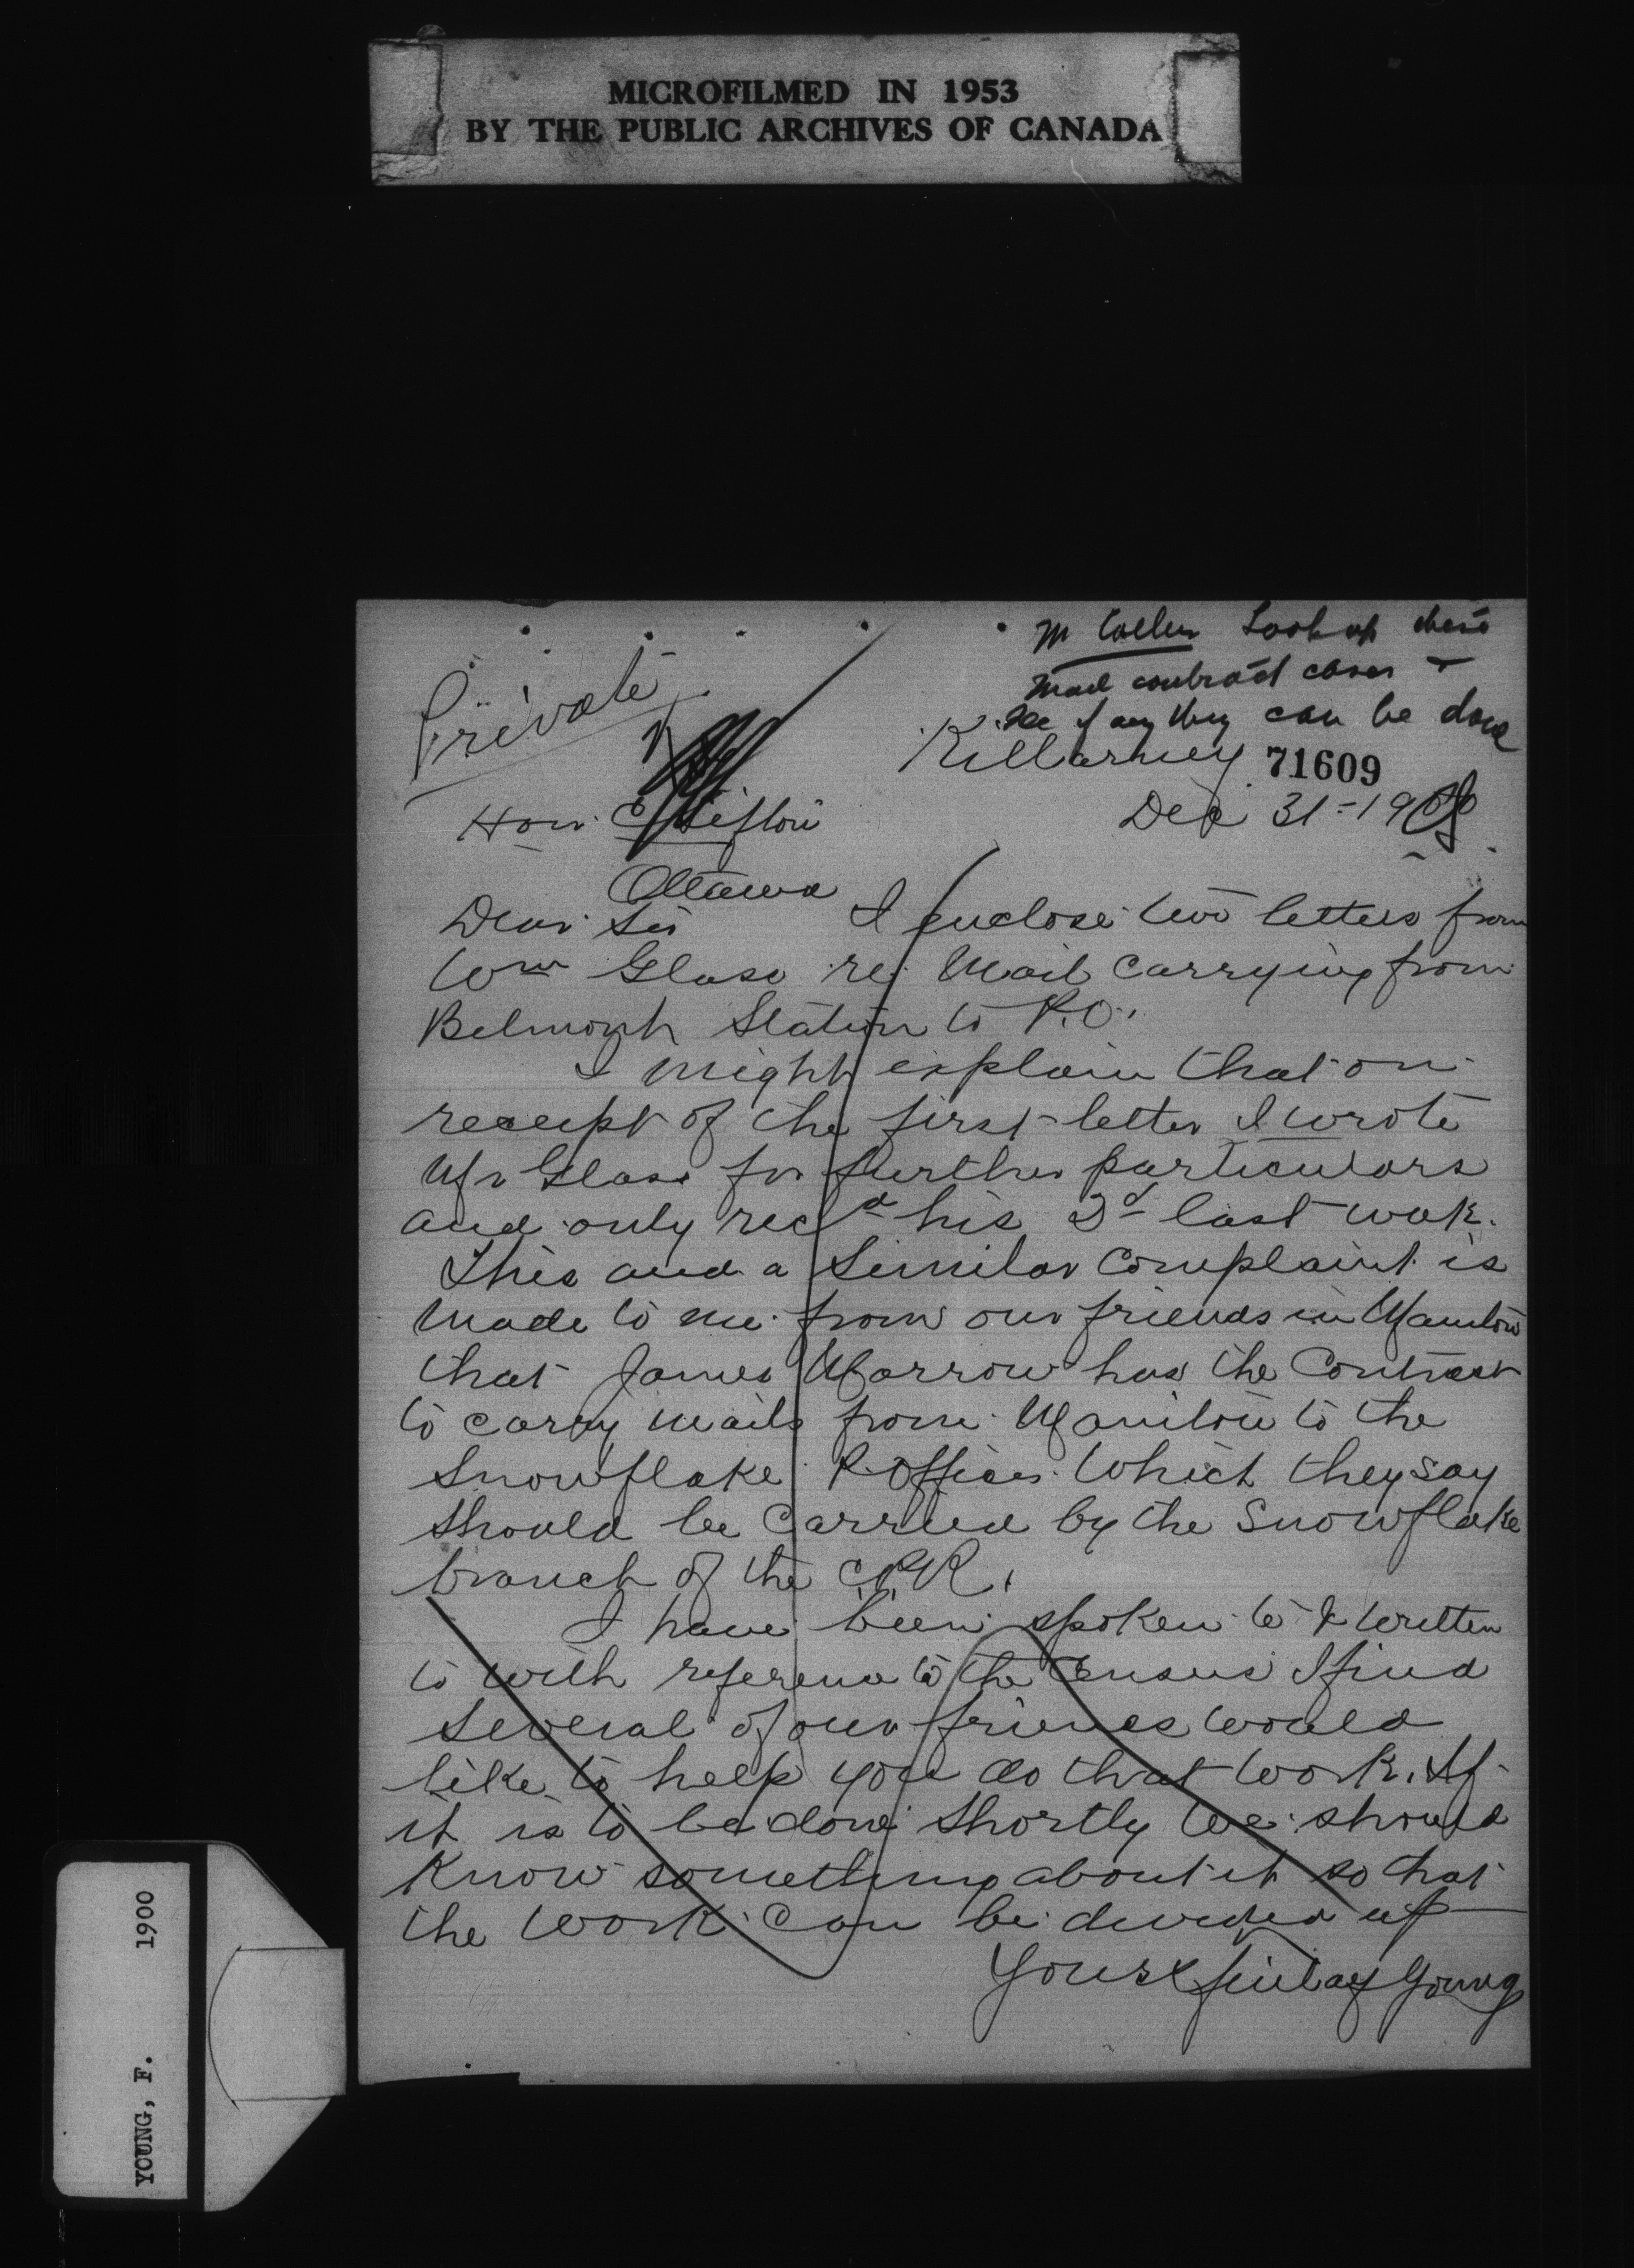 MICROFILMED IN 1953
BY THE PUBLIC ARCHIVES OF CANADA
Look up these
mail contract cases &
see if any thing can be done
Private
Killarney
71609
Dec 31 - 1900
Hon. C Sifton
Ottawa
Dear Sir I enclose two letters from
Wm Glass re Mail carrying from
Belmont Station to P.O.
I might explain that on
receipt of the first letter I wrote
Mr Glass for further particulars
and only recd his 2d last week.
This and a Similar Complaint is
made to me from our friends in Manitou
that James Morrow has the Contract
to carry mails from Manitou to the
Snowflake P. Offices which they say
should be Carried by the Snowflake
branch of the CPR.
I have been spoken to & written
to with reference to the Census I find
several of our friends would
like to help you do that work. If
it is to be done shortly we should
Know something about it so that
the work can be divided up
Yours Finlay Young
YOUNG, F. 1900